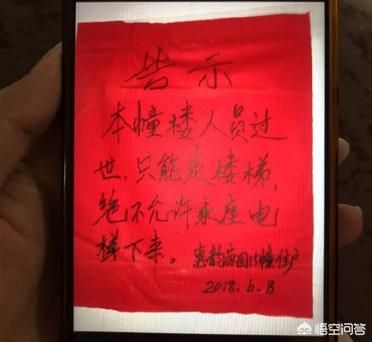 告示
本幢楼人员过
世，只能走楼梯，
绝不允许乘座电
梯下来。
惠韵家园15幢住户
2018.6.8
悟空问答